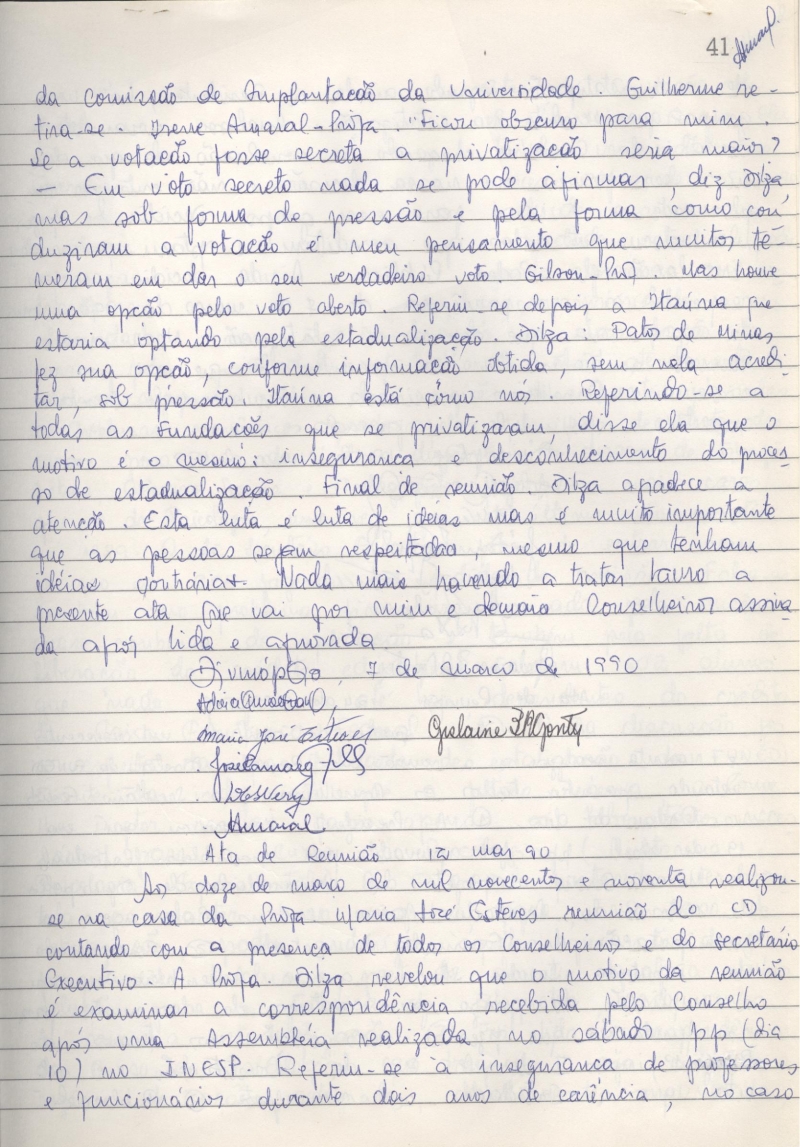 41 Amaral
da Comissão de Implantação da Universidade. Guilherme re-
tira-se. Irene Amaral-Profa. "Ficou obscuro para mim.
Se a votação fosse secreta a privatização seria maior?
- Em voto secreto nada se pode afirmar, diz Dilza,
mas sob forma de pressão e pela forma como con
duziram a votação é meu pensamento que muitos te-
meram em dar o seu verdadeiro voto. Gilson-Prof. Mas houve
uma opção pelo voto aberto. Referiu-se depois a Itaúna que
estaria optando pela estadualização. Dilza: Patos de Minas
fez sua opção, conforme informação obtida, sem nela acredi-
tar, sob pressão. Itaúna está como nós. Referindo-se a
todas as Fundações que se privatizaram, disse ela que o
motivo é o mesmo: insegurança e desconhecimento do proces-
so de estadualização. Final de reunião. Dilza agradece a
atenção. Esta luta é luta de idéias mas é muito importante
que as pessoas sejam respeitadas, mesmo que tenham
idéias contrárias. Nada mais havendo a tratar lavro a
presente ata que vai por mim e demais Conselheiros assina
da após lida e aprovada
Divinópolis, 7 de março de 1990
Maria José Esteves
José Camarg
Amaral
Ata de Reunião 12 mar 90
Aos doze de março de mil novecentos e noventa realizou-
se na casa da Profa Maria José Esteves reunião do CD
contando com a presença de todos os Conselheiros e do Secretário
Executivo. A Profa. Dilza revelou que o motivo da reunião
é examinar a correspondência recebida pelo Conselho
após uma Assembléia realizada no sábado pp (dia
10) no INESP. Referiu-se à insegurança de professores
e funcionários durante dois anos de carência, no caso